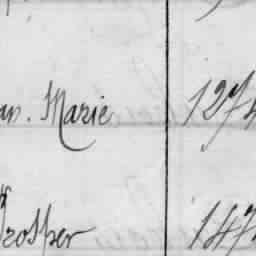 an. Marie 1274
rosper 147